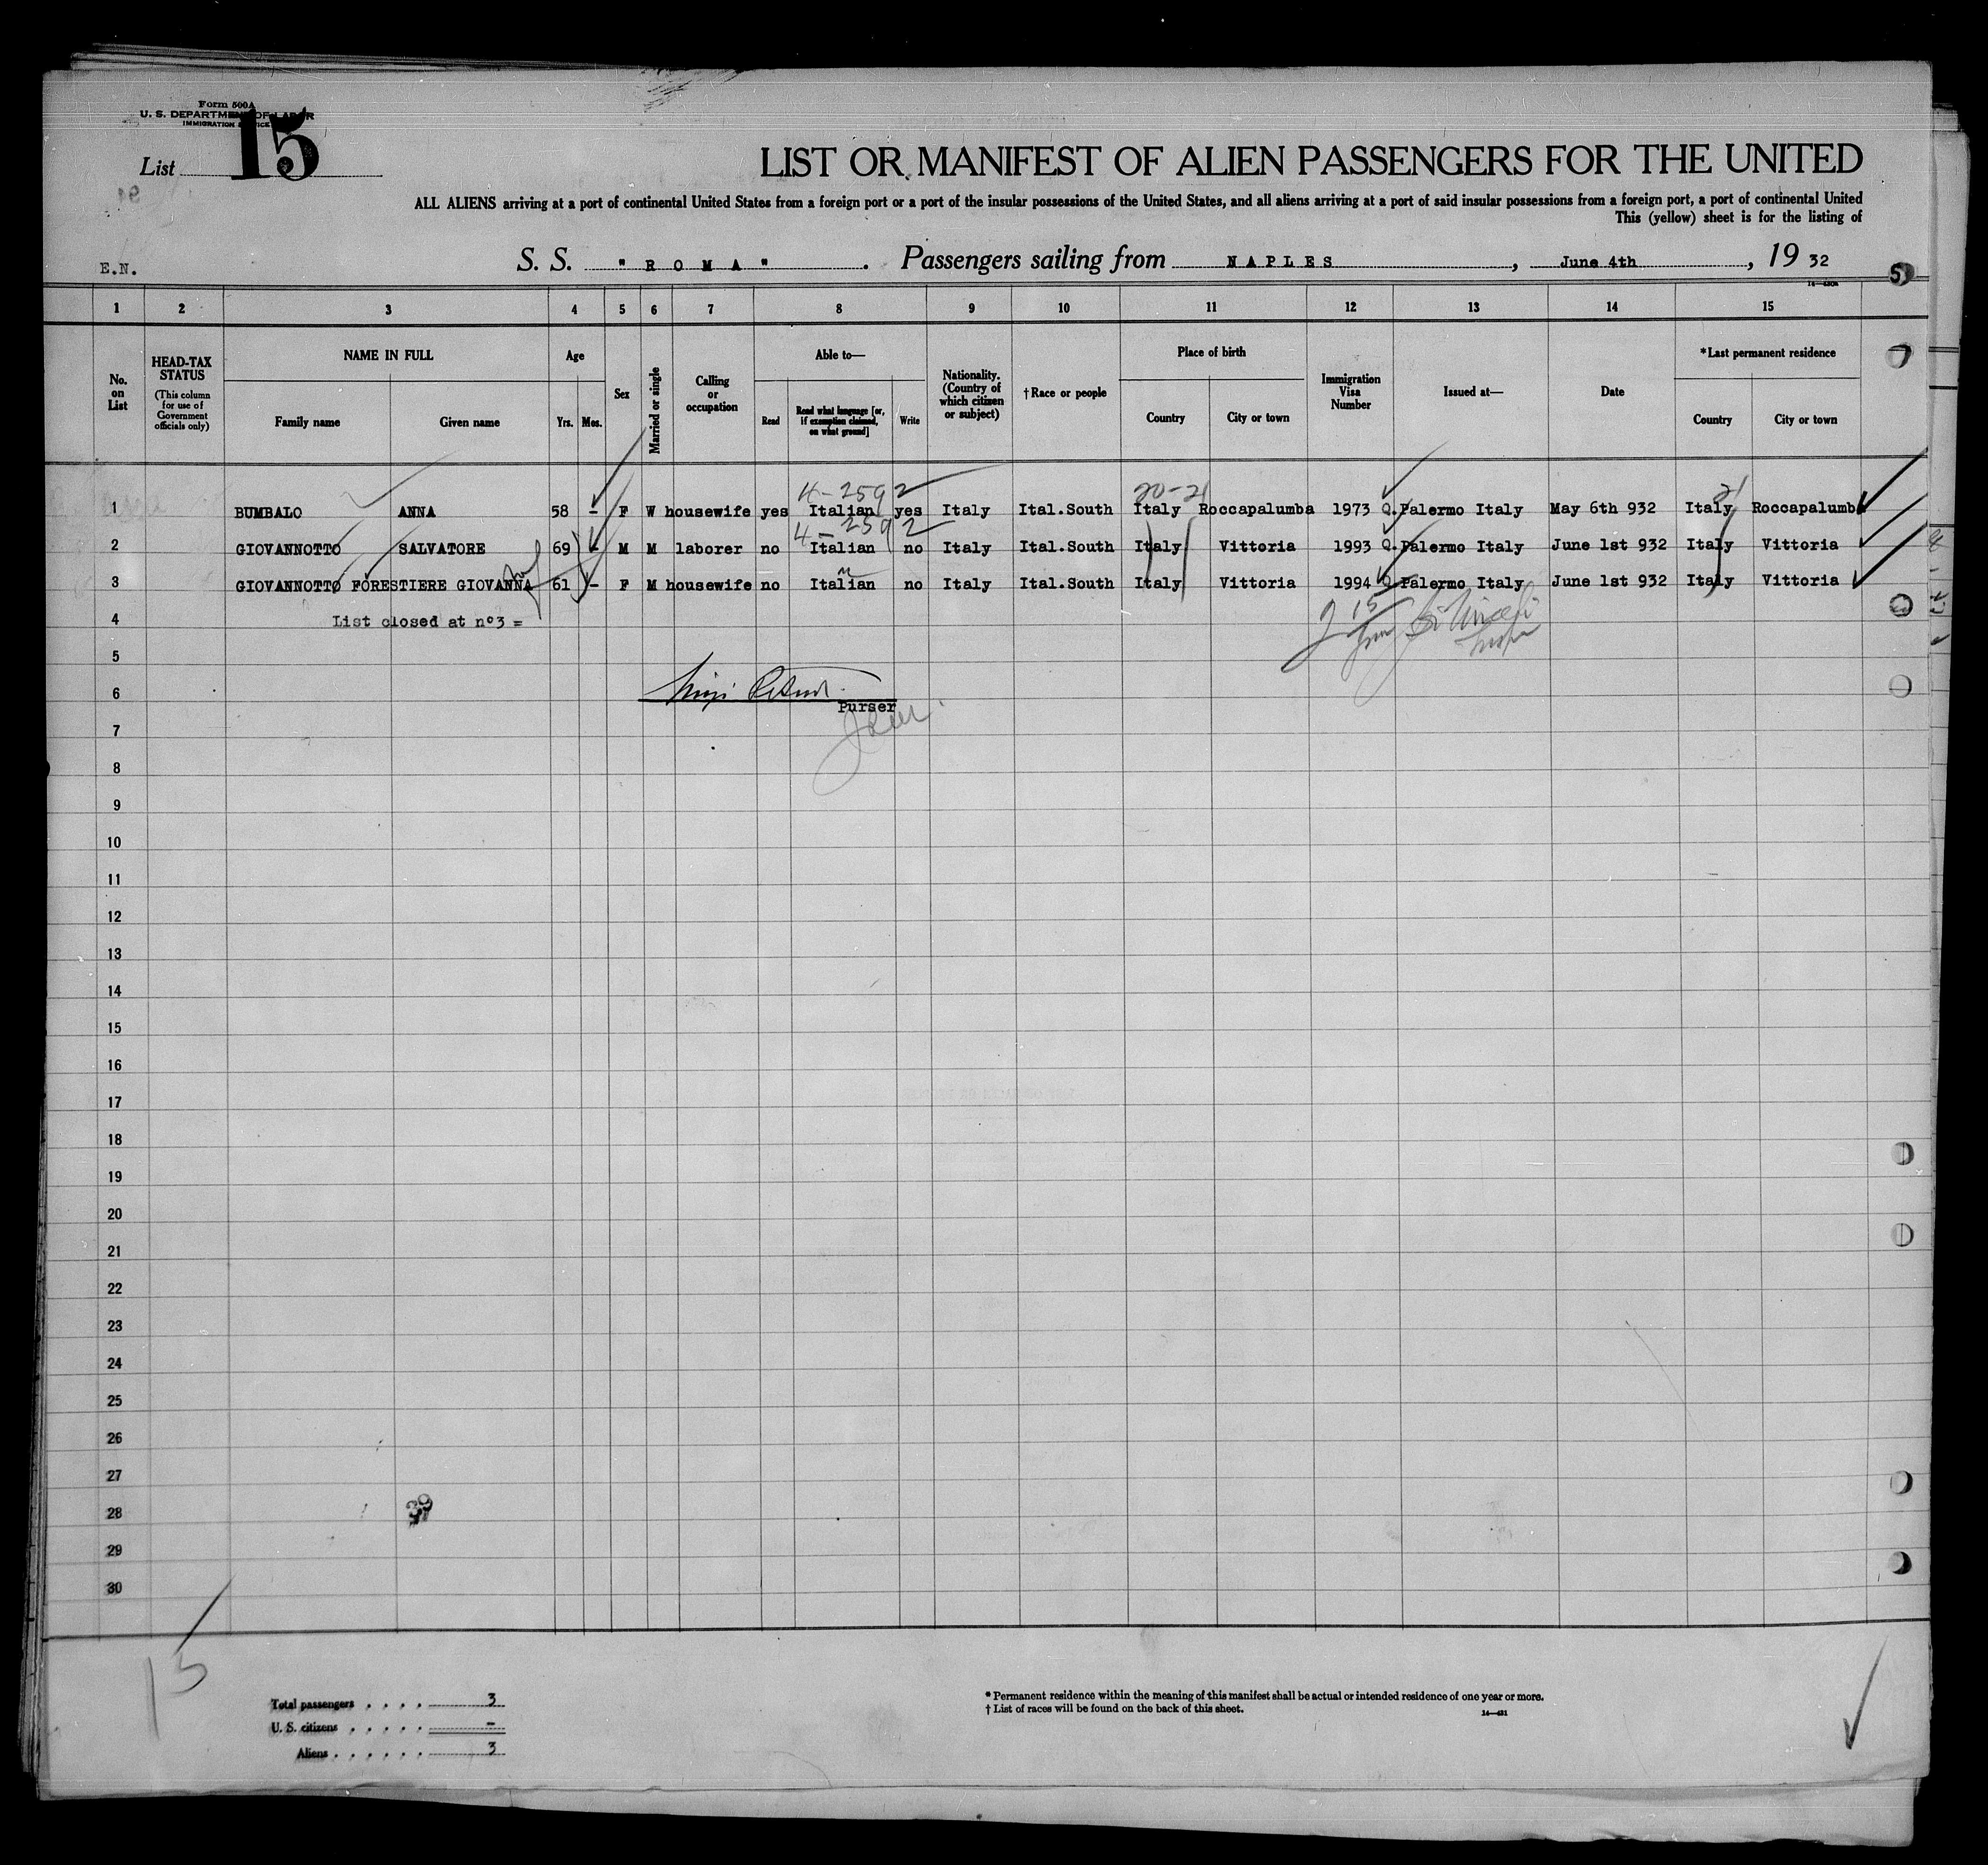 Form 500A
U. S. DEPARTMENT OF LABOR
IMMIGRATION SERVICE
List 15
LIST OR MANIFEST OF ALIEN PASSENGERS FOR THE UNITED
ALL ALIENS arriving at a port of continental United States from a foreign port or a port of the insular possessions of the United States, and all aliens arriving at a port of said insular possessions from a foreign port, a port of continental United
This (yellow) sheet is for the listing of
E.N.
S. S. "ROMA" . Passengers sailing from NAPLES , June 4th , 19 32
5
1 2 3 4 5 6 7 8 9 10 11 12 13 14 15
No. on List
HEAD-TAX STATUS (This column for use of Government officials only)
NAME IN FULL
Family name Given name
Age
Yrs. Mos.
Sex
Married or single
Calling or occupation
Able to—
Read
Read what language [or, if exemption claimed, on what ground]
Write
Nationality. (Country of which citizen or subject)
†Race or people
Place of birth
Country City or town
Immigration Visa Number
Issued at—
Date
*Last permanent residence
Country City or town
4-2592 20-21 21
1 BUMBALO ANNA 58 - F W housewife yes Italian yes Italy Ital.South Italy Roccapalumba 1973 Q. Palermo Italy May 6th 932 Italy Roccapalumba
4-2592
2 GIOVANNOTTO SALVATORE 69 - M M laborer no Italian no Italy Ital.South Italy Vittoria 1993 Q. Palermo Italy June 1st 932 Italy Vittoria
3 GIOVANNOTTO FORESTIERE GIOVANNA 61 - F M housewife no Italian no Italy Ital.South Italy Vittoria 1994 Q. Palermo Italy June 1st 932 Italy Vittoria
4 List closed at nº3 =
5
6
Purser
7
8
9
10
11
12
13
14
15
16
17
18
19
20
21
22
23
24
25
26
27
28
29
30
15
Total passengers . . . . 3
U. S. citizens . . . . . -
Aliens . . . . . . 3
* Permanent residence within the meaning of this manifest shall be actual or intended residence of one year or more.
† List of races will be found on the back of this sheet.